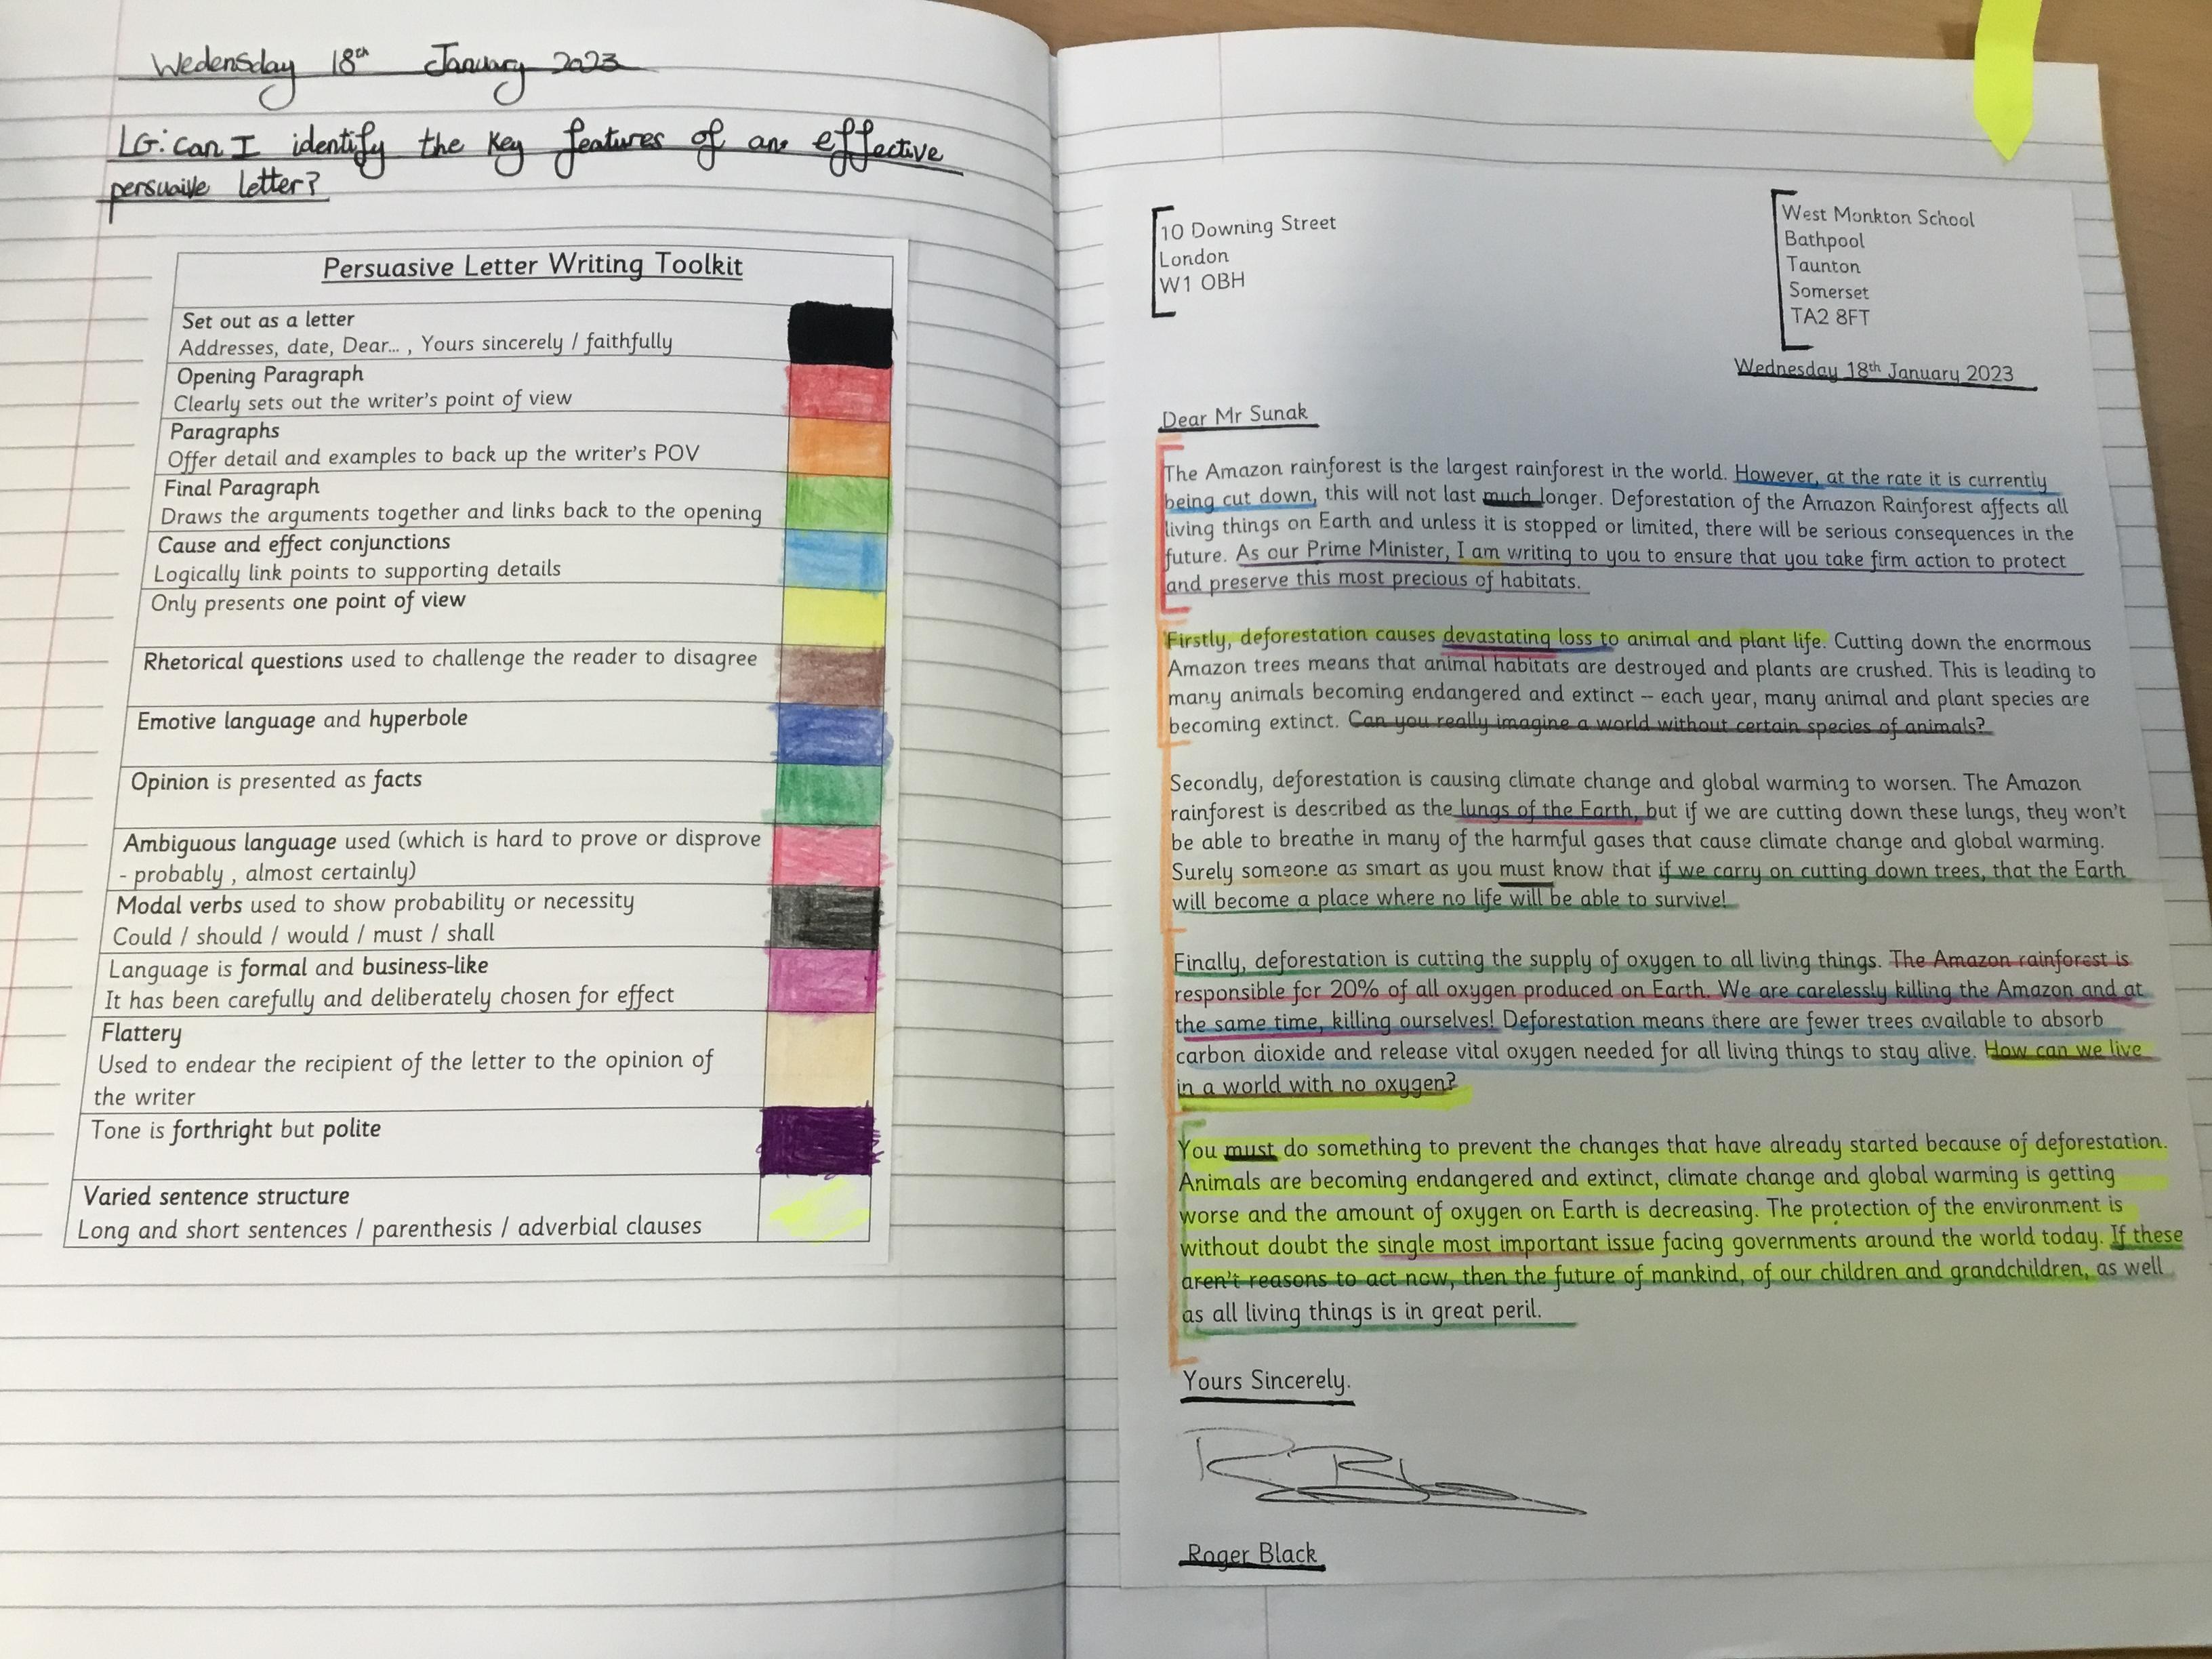 Wedensday 18th January 2023
LG: Can I identify the key features of an effective
persuaive letter?
Persuasive Letter Writing Toolkit
Set out as a letter
Addresses, date, Dear... , Yours sincerely / faithfully
Opening Paragraph
Clearly sets out the writer's point of view
Paragraphs
Offer detail and examples to back up the writer's POV
Final Paragraph
Draws the arguments together and links back to the opening
Cause and effect conjunctions
Logically link points to supporting details
Only presents one point of view
Rhetorical questions used to challenge the reader to disagree
Emotive language and hyperbole
Opinion is presented as facts
Ambiguous language used (which is hard to prove or disprove
- probably , almost certainly)
Modal verbs used to show probability or necessity
Could / should / would / must / shall
Language is formal and business-like
It has been carefully and deliberately chosen for effect
Flattery
Used to endear the recipient of the letter to the opinion of
the writer
Tone is forthright but polite
Varied sentence structure
Long and short sentences / parenthesis / adverbial clauses
10 Downing Street
London
W1 OBH
West Monkton School
Bathpool
Taunton
Somerset
TA2 8FT
Wednesday 18th January 2023
Dear Mr Sunak
The Amazon rainforest is the largest rainforest in the world. However, at the rate it is currently
being cut down, this will not last much longer. Deforestation of the Amazon Rainforest affects all
living things on Earth and unless it is stopped or limited, there will be serious consequences in the
future. As our Prime Minister, I am writing to you to ensure that you take firm action to protect
and preserve this most precious of habitats.
Firstly, deforestation causes devastating loss to animal and plant life. Cutting down the enormous
Amazon trees means that animal habitats are destroyed and plants are crushed. This is leading to
many animals becoming endangered and extinct – each year, many animal and plant species are
becoming extinct. Can you really imagine a world without certain species of animals?
Secondly, deforestation is causing climate change and global warming to worsen. The Amazon
rainforest is described as the lungs of the Earth, but if we are cutting down these lungs, they won't
be able to breathe in many of the harmful gases that cause climate change and global warming.
Surely someone as smart as you must know that if we carry on cutting down trees, that the Earth
will become a place where no life will be able to survive!
Finally, deforestation is cutting the supply of oxygen to all living things. The Amazon rainforest is
responsible for 20% of all oxygen produced on Earth. We are carelessly killing the Amazon and at
the same time, killing ourselves! Deforestation means there are fewer trees available to absorb
carbon dioxide and release vital oxygen needed for all living things to stay alive. How can we live
in a world with no oxygen?
You must do something to prevent the changes that have already started because of deforestation.
Animals are becoming endangered and extinct, climate change and global warming is getting
worse and the amount of oxygen on Earth is decreasing. The protection of the environment is
without doubt the single most important issue facing governments around the world today. If these
aren't reasons to act now, then the future of mankind, of our children and grandchildren, as well
as all living things is in great peril.
Yours Sincerely.
Roger Black